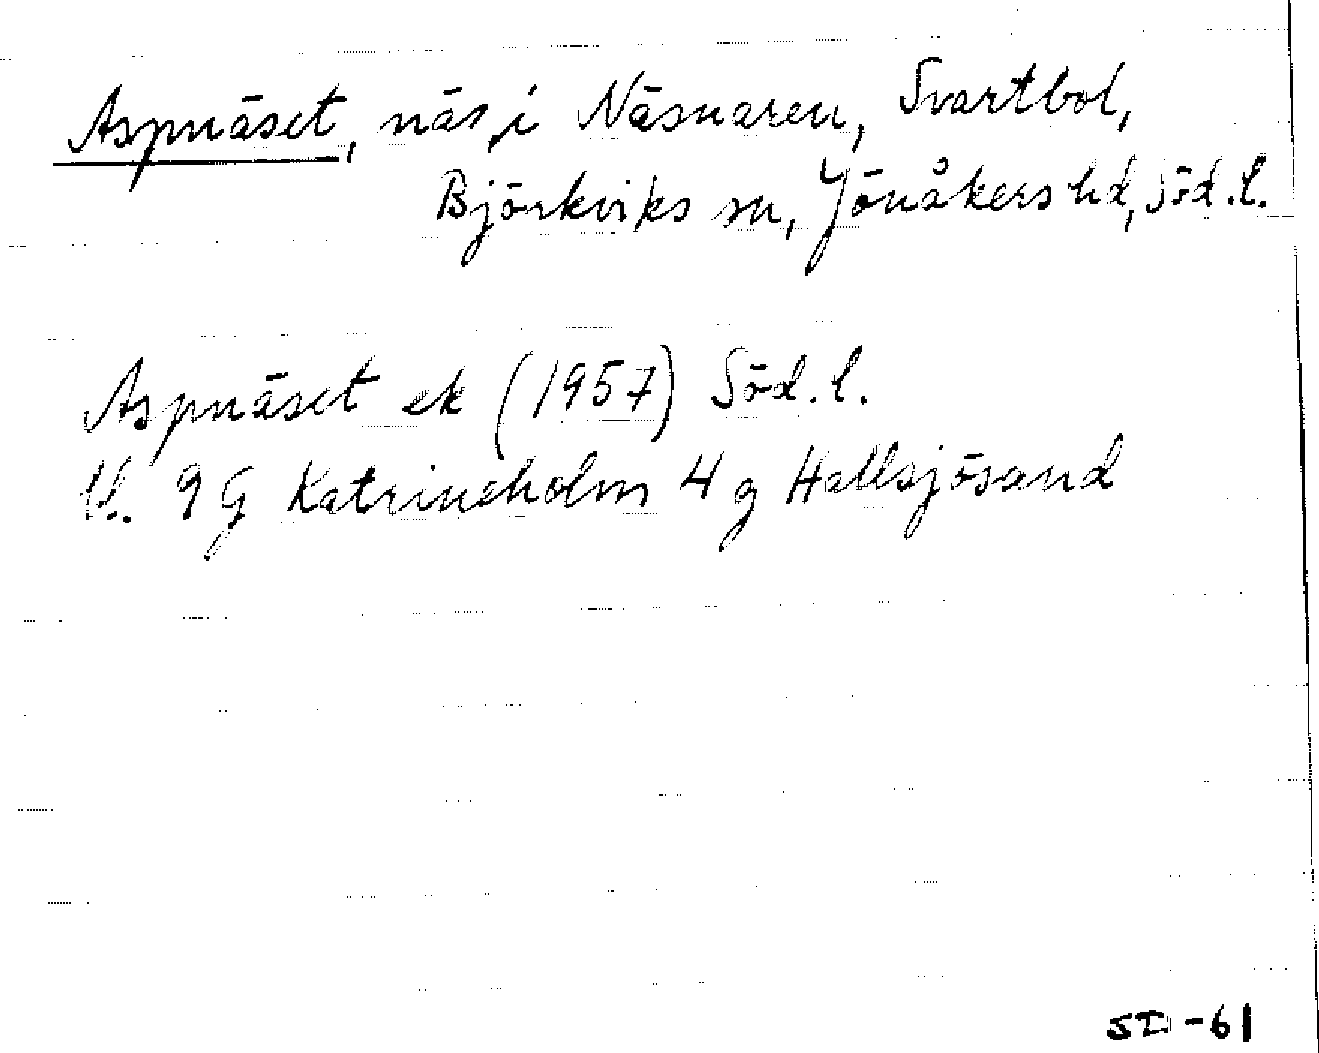 Aspnäset, näs, i Näsnaren, Svartbol,
Björkviks sn, Jönåkers hd, Söd. l.
Aspnäset ek (1957) Söd. l.
9 G Katrineholm 4 g Hallsjösand
SD-61